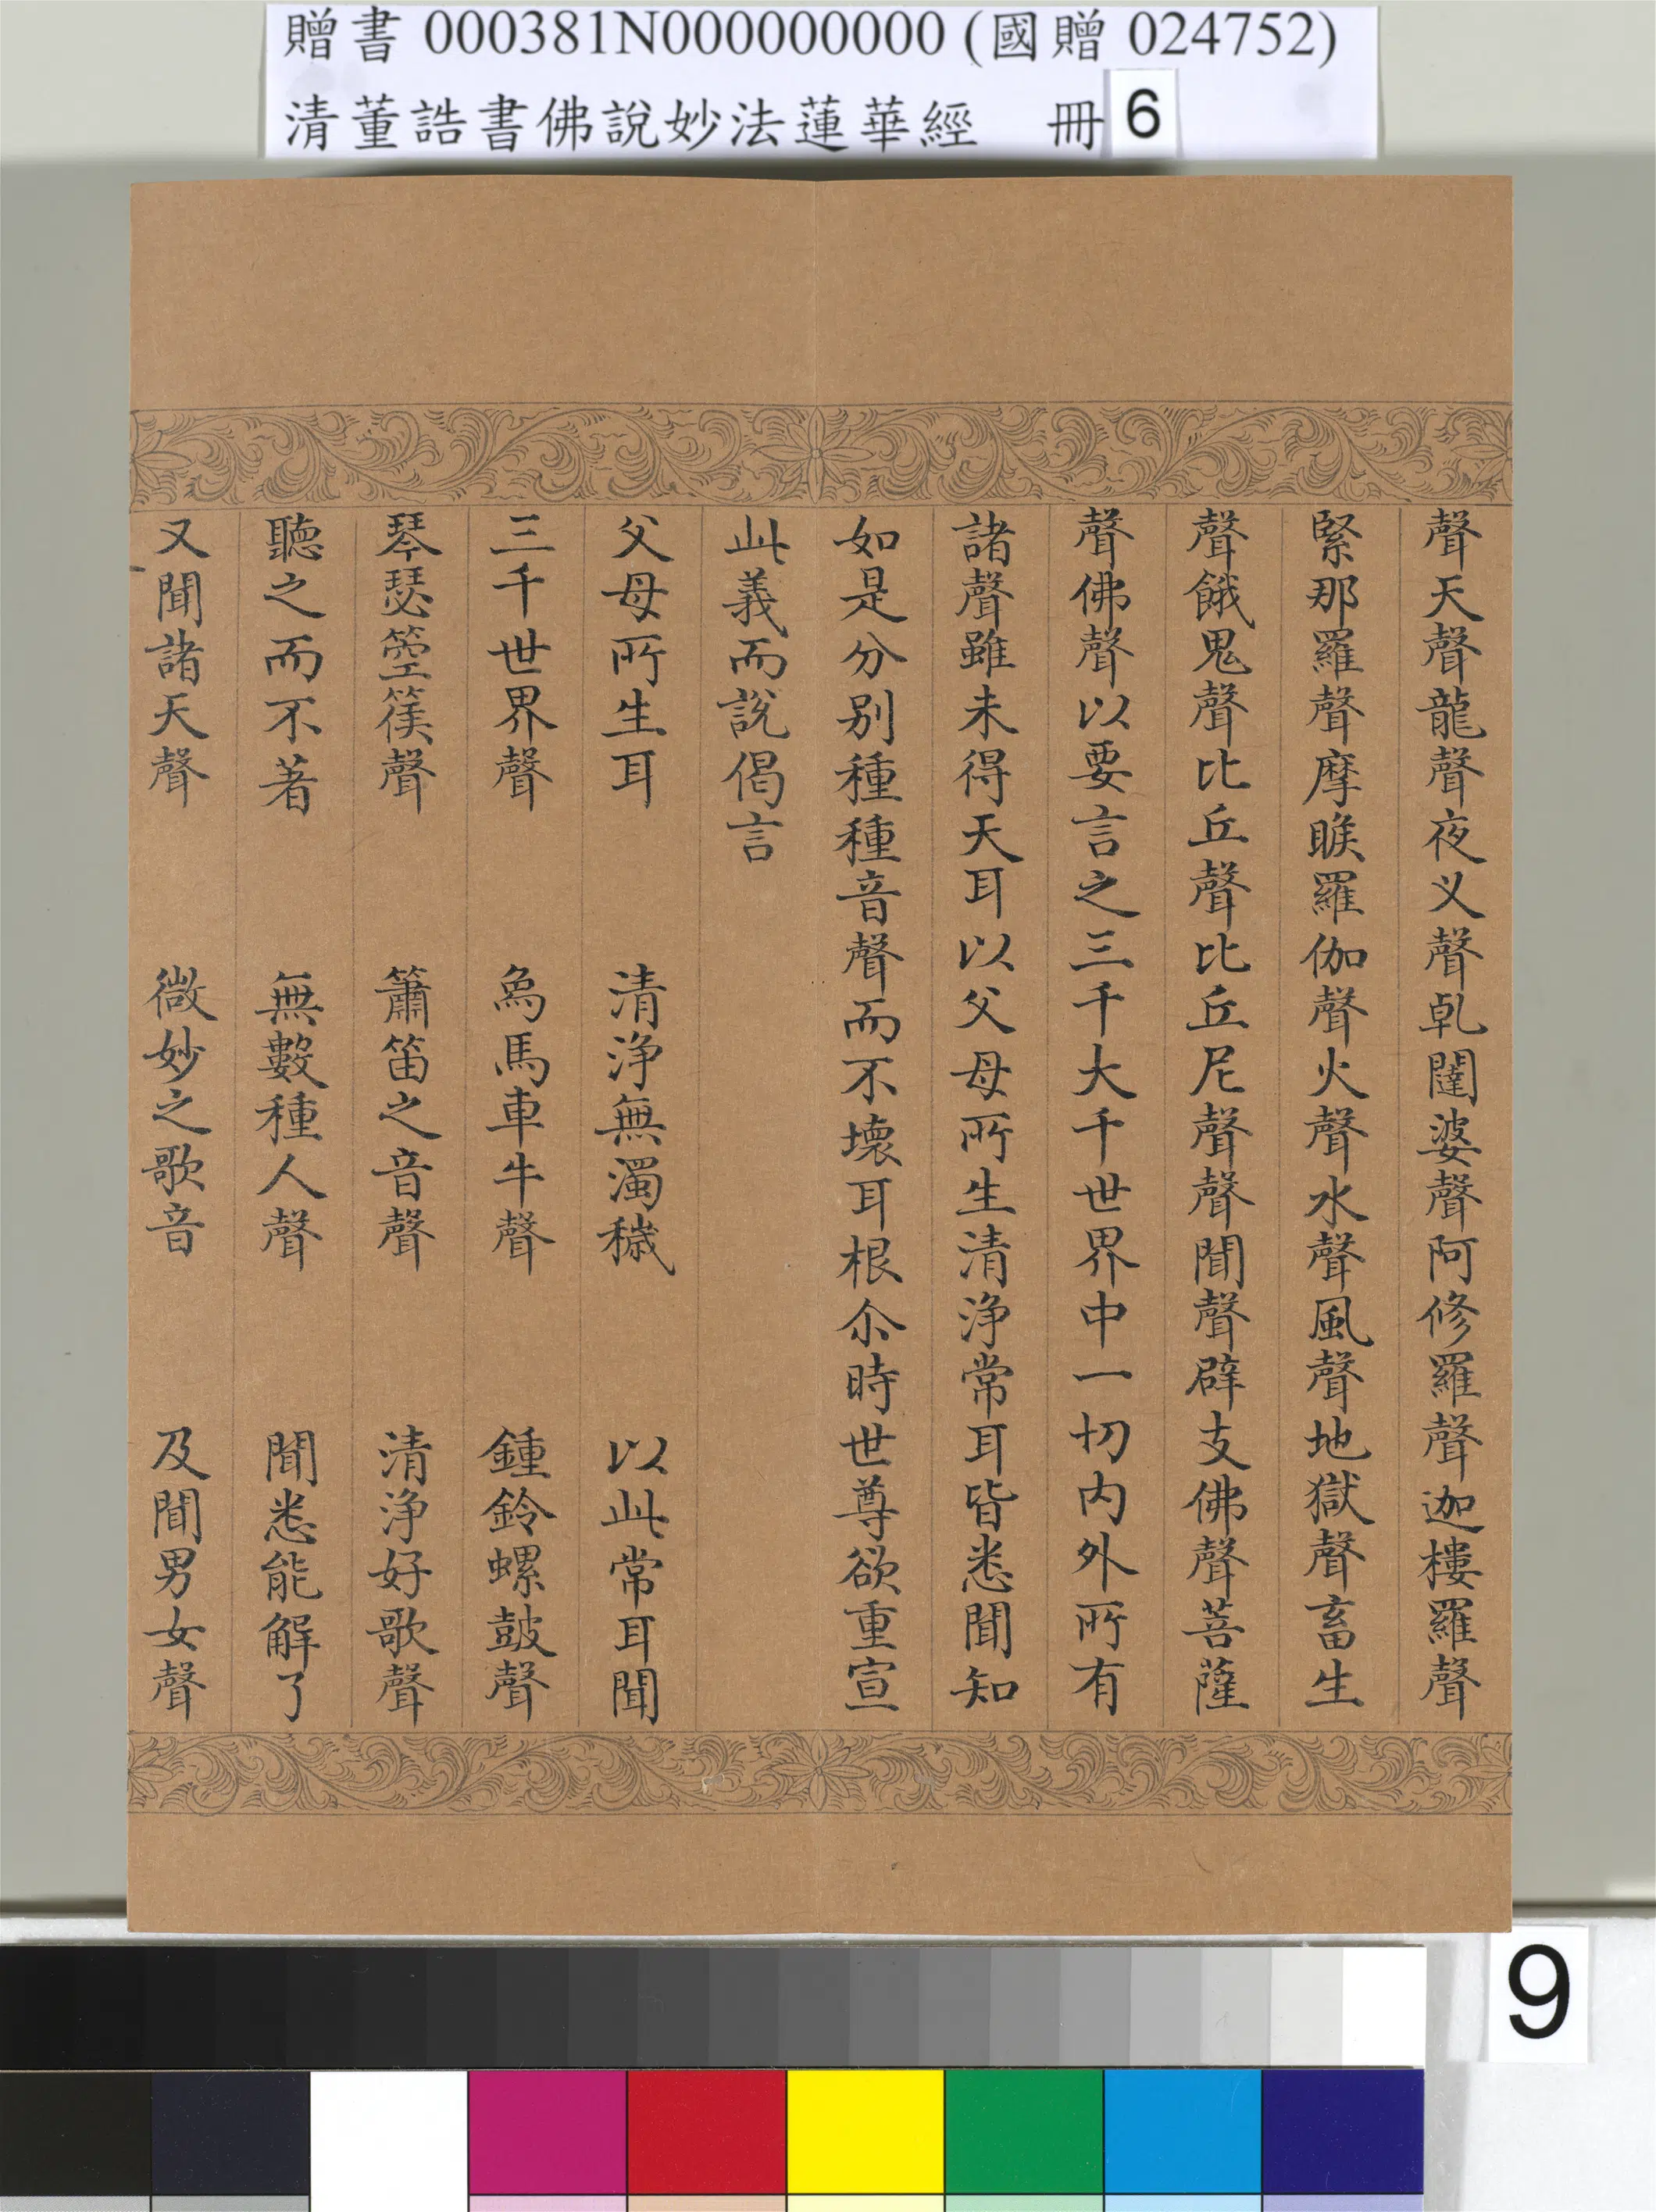 贈書 000381N000000000 (國贈 024752)
清董誥書佛說妙法蓮華經 冊 6
聲天聲龍聲夜义聲乹闥婆聲阿修羅聲迦樓羅聲
緊那羅聲摩睺羅伽聲火聲水聲風聲地獄聲畜生
聲餓鬼聲比丘聲比丘尼聲聲聞聲辟支佛聲菩薩
聲佛聲以要言之三千大千世界中一切內外所有
諸聲雖未得天耳以父母所生清淨常耳皆悉聞知
如是分別種種音聲而不壞耳根尒時世尊欲重宣
此義而說偈言
父母所生耳 清淨無濁穢 以此常耳聞
三千世界聲 象馬車牛聲 鍾鈴螺鼓聲
琴瑟箜篌聲 簫笛之音聲 清淨好歌聲
聽之而不著 無數種人聲 聞悉能解了
又聞諸天聲 微妙之歌音 及聞男女聲
9